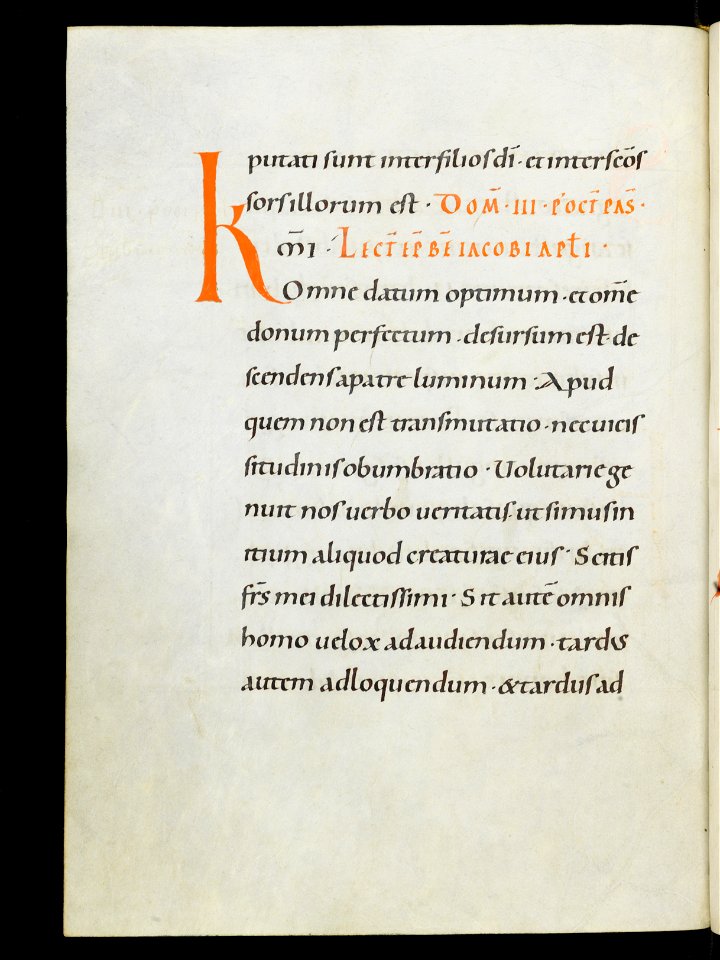 putati sunt inter filios dī · et inter sc̄os
sors illorum est · DOM̄ · III · P' OCT̄ PAS̄ ·
K m̄i · LECT̄ EP̄ BĒ IACOBI APT̄LI ·
Omne datum optimum · et om̄e
donum perfectum · desursum est · de
scendens a patre luminum · Apud
quem non est transmutatio · nec vicis
situdinis obumbratio · Uolutarie ge
nuit nos uerbo ueritatis · ut simus in
itium aliquod creaturae eius · Scitis
fr̄s mei dilectissimi · Sit autē omnis
homo uelox ad audiendum · tardus
autem ad loquendum · & tardus ad